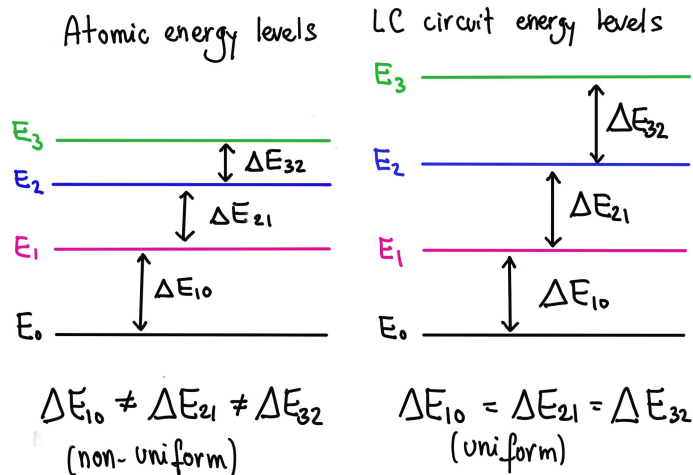 Atomic energy levels
E₃
ΔE₃₂
E₂
ΔE₂₁
E₁
ΔE₁₀
E₀
ΔE₁₀ ≠ ΔE₂₁ ≠ ΔE₃₂
(non-uniform)
LC circuit energy levels
E₃
ΔE₃₂
E₂
ΔE₂₁
E₁
ΔE₁₀
E₀
ΔE₁₀ = ΔE₂₁ = ΔE₃₂
(uniform)